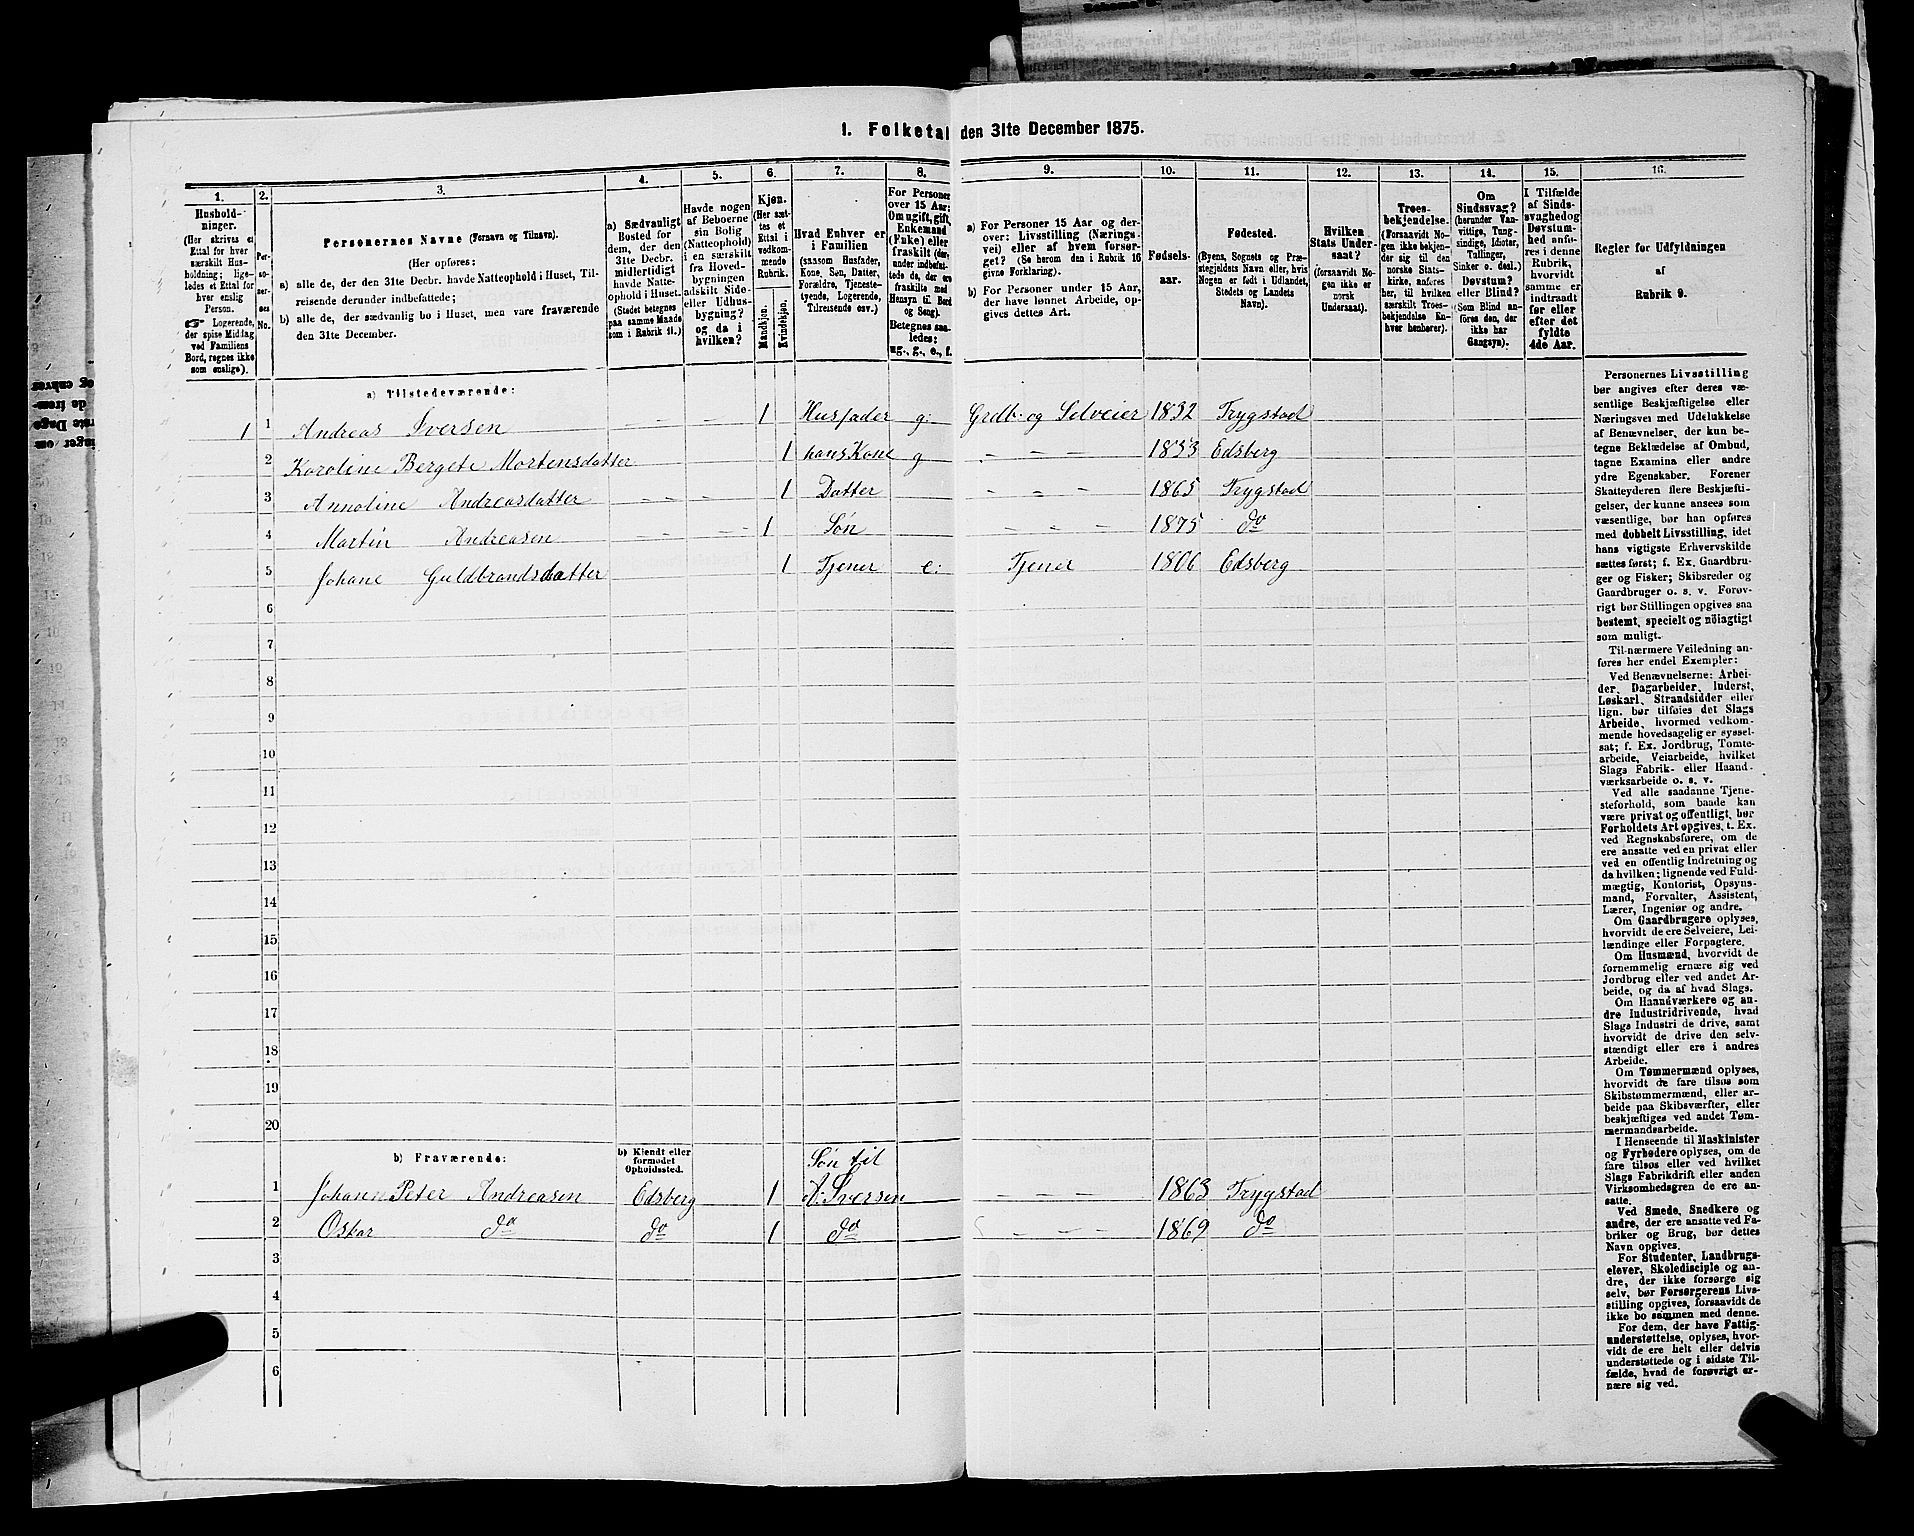 1. Folketal den 31te December 1875.
1. 2. 3. 4. 5. 6. 7. 8. 9. 10. 11. 12. 13. 14. 15. 16.
Hushold-
ninger.
(Her skrives et
Ettal for hver
særskilt Hus-
holdning; lige-
ledes et Ettal for
hver enslig
Person.
☞ Logerende,
der spise Middag
ved Familiens
Bord, regnes ikke
som enslige).
Per-
so-
ner-
nes
No.
Personernes Navne (Fornavn og Tilnavn).
(Her opføres:
a) alle de, der den 31te Decbr. havde Natteophold i Huset, Til-
reisende derunder indbefattede;
b) alle de, der sædvanlig bo i Huset, men vare fraværende
den 31te December.
a) Sædvanligt
Bosted for
dem, der den
31te Decbr.
midlertidigt
havde Natte-
ophold i Huset.
(Stedet betegnes
paa samme Maade
som i Rubrik 11.)
Havde nogen
af Beboerne
sin Bolig
(Natteophold)
i en særskilt
fra Hoved-
bygningen
adskilt Side-
eller Udhus-
bygning?
og da i
hvilken?
Kjøn.
(Her sæt-
tes et
Ettal i
vedkom-
mende
Rubrik.
Mandkjøn.
Kvindekjøn.
Hvad Enhver er
i Familien
(saasom Husfader,
Kone, Søn, Datter,
Forældre, Tjeneste-
tyende, Logerende,
Tilreisende osv.)
For Personer
over 15 Aar:
Om ugift, gift,
Enkemand
(Enke) eller
fraskilt (der-
under indbefat-
tede de, der ere
fraskilte med
Hensyn til Bord
og Seng).
Betegnes saa-
ledes:
ug., g., e., f.
a) For Personer 15 Aar og der-
over: Livsstilling (Nærings-
vei) eller af hvem forsør-
get? (Se herom den i Rubrik 16
givne Forklaring).
b) For Personer under 15 Aar,
der have lønnet Arbeide, op-
gives dettes Art.
Fødsels-
aar.
Fødested.
(Byens, Sognets og Præ-
stegjeldets Navn eller, hvis
Nogen er født i Udlandet,
Stedets og Landets
Navn).
Hvilken
Stats Under-
saat?
(forsaavidt No-
gen ikke er
norsk
Undersaat).
Troes-
bekjendelse.
(Forsaavidt No-
gen ikke bekjen-
der sig til den
norske Stats-
kirke, anføres
her, til hvilken
særskilt Troes-
bekjendelse En-
hver henhører).
Om
Sindssvag?
(herunder Van-
vittige, Tung-
sindige, Idioter,
Tullinger,
Sinker o. desl.)
Døvstum?
eller Blind?
(Som Blind an-
føres den, der
ikke har
Gangsyn).
I Tilfælde
af Sinds-
svaghed og
Døvstum-
hed anfø-
res i denne
Rubrik,
hvorvidt
samme er
indtraadt
før eller
efter det
fyldte
4de Aar.
Regler før Udfyldningen
af
Rubrik 9.
a) Tilstedeværende:
1 1 Andreas Iversen — — — — 1 Husfader g: Grdb. og Selveier 1832 Trygstad
2 Karoline Bergete Mortensdatter 1 hans Kone g — — — 1833 Edsberg
3 Annoline Andreasdatter — — — — 1 Datter — — — 1865 Trygstad
4 Martin Andreasen — — — — 1 Søn — — — 1875 do
5 Johane Guldbrandsdatter 1 Tjener e: Tjener 1806 Edsberg
6
7
8
9
10
11
12
13
14
15
16
17
18
19
20
b) Fraværende:
b) Kjendt eller
formodet
Opholdssted.
Søn til
1 Johann Peter Andreasen Edsberg 1 A: Iversen — — — 1863 Trygstad
2 Oskar do do 1 do — — 1869 do
3
4
5
6
Personernes Livsstilling
bør angives efter deres væ-
sentlige Beskjæftigelse eller
Næringsvei med Udelukkelse
af Benævnelser, der kun be-
tegne Beklædelse af Ombud,
tagne Examina eller andre
ydre Egenskaber. Forener
Skatteyderen flere Beskjæfti-
gelser, der kunne ansees som
væsentlige, bør han opføres
med dobbelt Livsstilling, idet
hans vigtigste Erhvervskilde
sættes først; f. Ex. Gaardbru-
ger og Fisker; Skibsreder og
Gaardbruger o. s. v. Forøv-
rigt bør Stillingen opgives saa
bestemt, specielt og nöiagtigt
som muligt.
Til nærmere Veiledning an-
føres her endel Exempler:
Ved Benævnelserne: Arbei-
der, Dagarbeider, Inderst,
Løskarl, Strandsidder eller
lign. bør tilføies det Slags
Arbeide, hvormed vedkom-
mende hovedsagelig er syssel-
sat; f. Ex. Jordbrug, Tomte-
arbeide, Veiarbeide, hvilket
Slags Fabrik- eller Haand-
værksarbeide o. s. v.
Ved alle saadanne Tjene-
steforhold, som baade kan
være privat og offentligt, bør
Forholdets Art opgives, t. Ex.
ved Regnskabsførere, om de
ere ansatte ved en privat eller
ved en offentlig Indretning og
da hvilken; lignende ved Fuld-
mægtig, Kontorist, Opsyns-
mand, Forvalter, Assistent,
Lærer, Ingeniør og andre.
Om Gaardbrugere oplyses,
hvorvidt de ere Selveiere, Lei-
lændinge eller Forpagtere.
Om Husmænd, hvorvidt de
fornemmelig ernære sig ved
Jordbrug eller ved andet Ar-
beide, og da af hvad Slags.
Om Haandværkere og an-
dre Industridrivende, hvad
Slags Industri de drive, samt
hvorvidt de drive den selv-
stændigt eller ere i andres
Arbeide.
Om Tømmermænd oplyses,
hvorvidt de fare tilsøs som
Skibstømmermænd, eller ar-
beide paa Skibsværfter, eller
beskjæftiges ved andet Tøm-
mermandsarbeide.
I Henseende til Maskinister
og Fyrbødere oplyses, om de
fare tilsøs eller ved hvilket
Slags Fabrikdrift eller anden
Virksomhedsgren de ere an-
satte.
Ved Smede, Snedkere og
andre, der ere ansatte ved Fa-
briker og Brug, bør dettes
Navn opgives.
For Studenter, Landbrugs-
elever, Skoledisciple og an-
dre, der ikke forsørge sig
selv, bør Forsørgerens Livs-
stilling opgives, forsaavidt de
ikke bo sammen med denne.
For dem, der have Fattig-
understøttelse, oplyses, hvor-
vidt de ere helt eller delvis
understøttede og i sidste Til-
fælde, hvad de forøvrigt er-
nære sig ved.